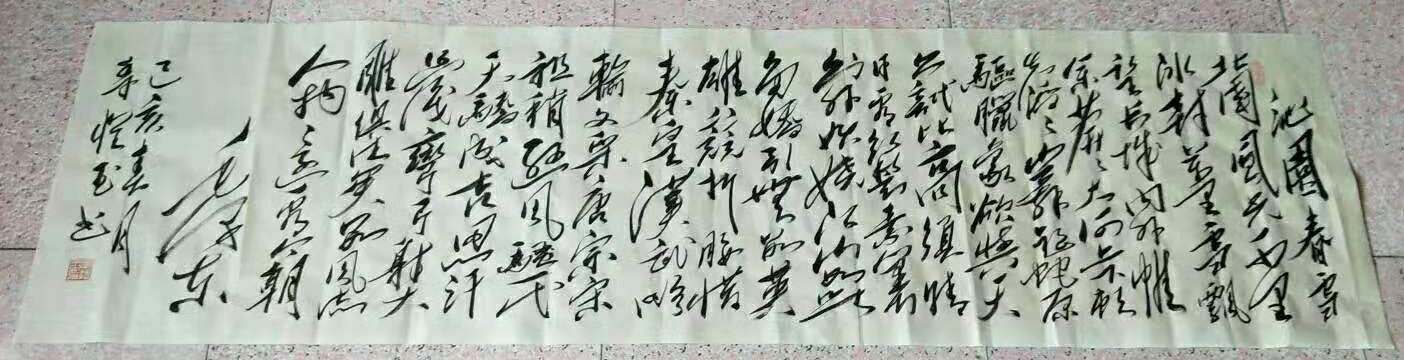 沁園春雪
北國風光千里
冰封萬里雪飄
望長城內外惟
余莽々大河上下頓
失滔々山舞銀蛇原
驅臘象欲與天
公試比高須晴
日看紅裝素裹
分外妖嬈江山如此
多嬌引無數英
雄競折腰惜
秦皇漢武略
輸文采唐宗宋
祖稍遜風騷一代
天驕成吉思汗
只識彎弓射大
雕俱往矣數風流
人物還看今朝
毛澤東
己亥春月
書